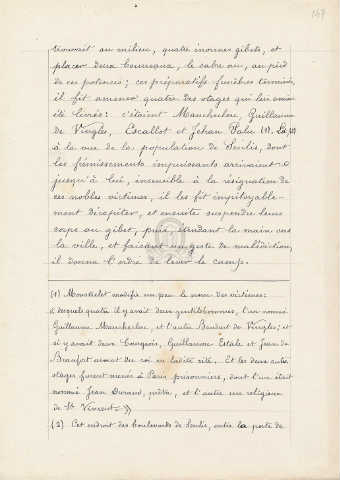 167
trouvait au milieu, quatre énormes gibets, et
placer deux bourreaux, le sabre nu, au pied
de ces potences; ces préparatifs funèbres terminés,
il fit amener quatre des otages qui lui avaient
été livrés: c'étaient Mancheclou, Guillaume
de Vingles, Escallot et Jehan Palu (1). Là, (2)
à la vue de la population de Senlis, dont
les frémissements impuissants arrivaient
jusqu'à lui, insensible à la résignation de
ces nobles victimes, il les fit impitoyable-
ment décapiter, et ensuite suspendre leurs
corps au gibet, puis, étendant la main vers
la ville, et faisant un geste de malédiction,
il donna l'ordre de lever le camp.
(1) Monstrelet modifie un peu le nom des victimes:
« desquels quatre il y avait deux gentilshommes, l'un nommé
Guillaume Mauchecler, et l'autre Boudart de Vingles; et
si y avait deux bourgois, Guillaume Estale et Jean de
Beaufort avocat du roi en ladite cité. Et les deux autres
otages furent menés à Paris prisonniers, dont l'un était
nommé Jean Durand, prêtre, et l'autre un religieux
de St Vincent »
(2) Cet endroit des boulevards de Senlis, entre la porte de